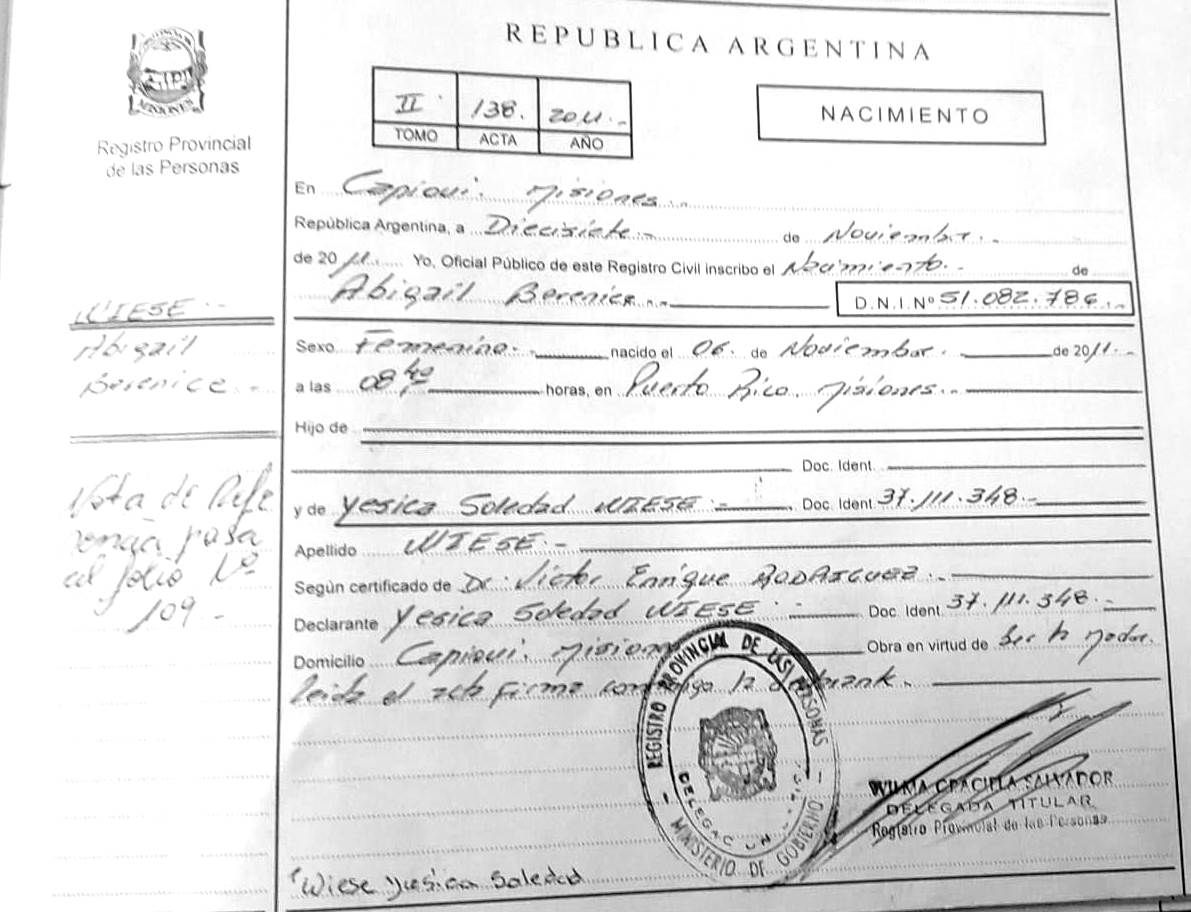 REPUBLICA ARGENTINA
MISIONES
Registro Provincial
de las Personas
II 138. 2011.-
TOMO ACTA AÑO
NACIMIENTO
En Capioui. Misiones.-
República Argentina, a Diecisiete.- de Noviembre.-
de 2011. Yo, Oficial Público de este Registro Civil inscribo el Nacimiento.- de
Abigail Berenice.- D.N.I.Nº 51.082.786.-
WIESE.-
Abigail
Berenice.-
Sexo Femenino.- nacido el 06. de Noviembre. de 2011.-
a las 08 40 horas, en Puerto Rico, Misiones.-
Hijo de
Doc. Ident.
y de Yesica Soledad WIESE.- Doc. Ident. 37.111.348.-
Apellido WIESE.-
Según certificado de Dr. Victor Enrique RODRIGUEZ.-
Declarante Yesica Soledad WIESE.- Doc. Ident. 37.111.348.-
Domicilio Capioui. Misiones Obra en virtud de Ser la Madre.
Leida el acta firma conmigo la
Nota de Refe
rencia pasa
al folio Nº
109.-
REGISTRO PROVINCIAL DE LAS PERSONAS
MINISTERIO DE GOBIERNO
WILMA GRACIELA SALVADOR
DELEGADA TITULAR
Registro Provincial de las Personas
Wiese Yesica Soledad